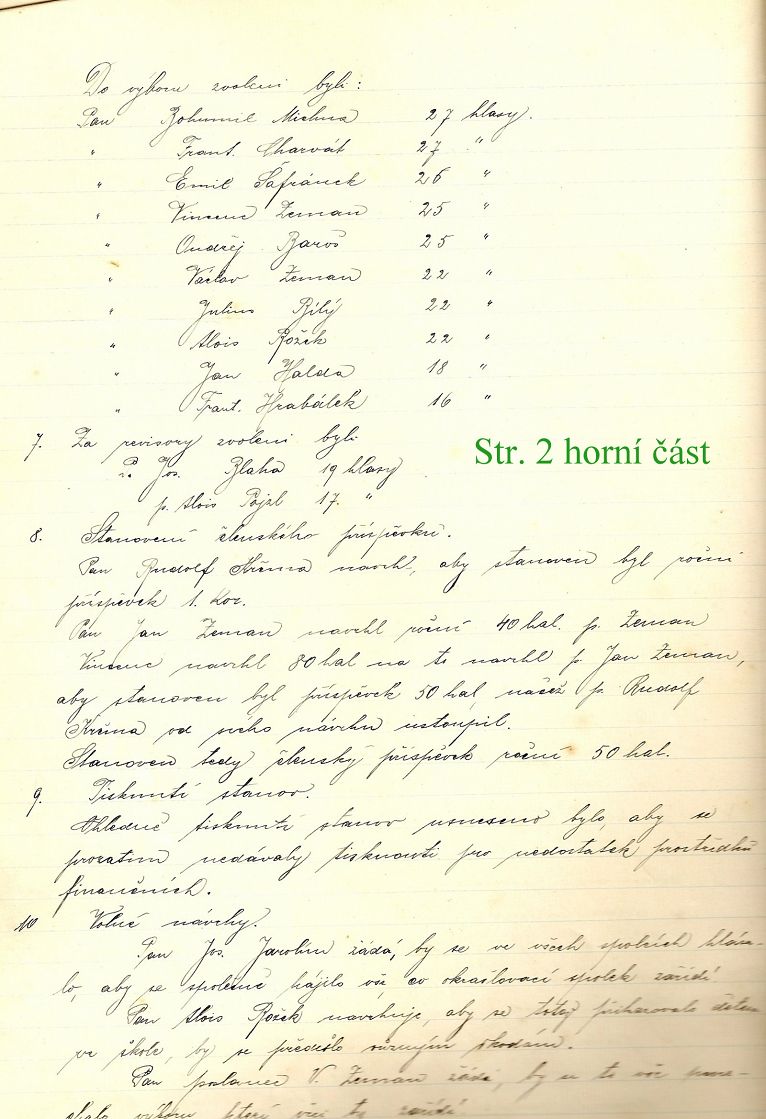 Do výboru zvoleni byli:
Pan Bohumil Michna 27 hlasy.
" Frant. Charvát 27 "
" Emil Šafránek 26 "
" Vincenc Zeman 25 "
" Ondřej Baroš 25 "
" Václav Zeman 22 "
" Julius Bílý 22 "
" Alois Rožek 22 "
" Jan Halda 18 "
" Frant. Hrabálek 16 "
7. Za revisory zvoleni byli
Str. 2 horní část
P. Jos. Blaha 19 hlasy
p. Alois Pojzl 17. "
8. Stanovení členského příspěvku.
Pan Rudolf Křéma navrhl, aby stanoven byl roční
příspěvek 1. Kor.
Pan Jan Zeman navrhl roční 40 hal. p. Zeman
Vincenc navrhl 80 hal na to navrhl p. Jan Zeman,
aby stanoven byl příspěvek 50 hal, načež p. Rudolf
Křéma od svého návrhu ustoupil.
Stanoven tedy členský příspěvek roční 50 hal.
9. Tisknutí stanov.
Ohledně tisknutí stanov usneseno bylo, aby se
prozatim nedávaly tisknouti pro nedostatek prostředků
finančních.
10 Volné návrhy.
Pan Jos. Jarolím žádá, by se ve všech spolcích hlása-
lo, aby se společně hájilo vše, co okrašlovací spolek zařídí.
Pan Alois Rožek navrhuje, aby se totéž přikazovalo dětem
ve škole, by se předešlo různým škodám.
Pan poslanec V. Zeman žádá, by se to vše pone-
chalo výboru který vše to zařídí.